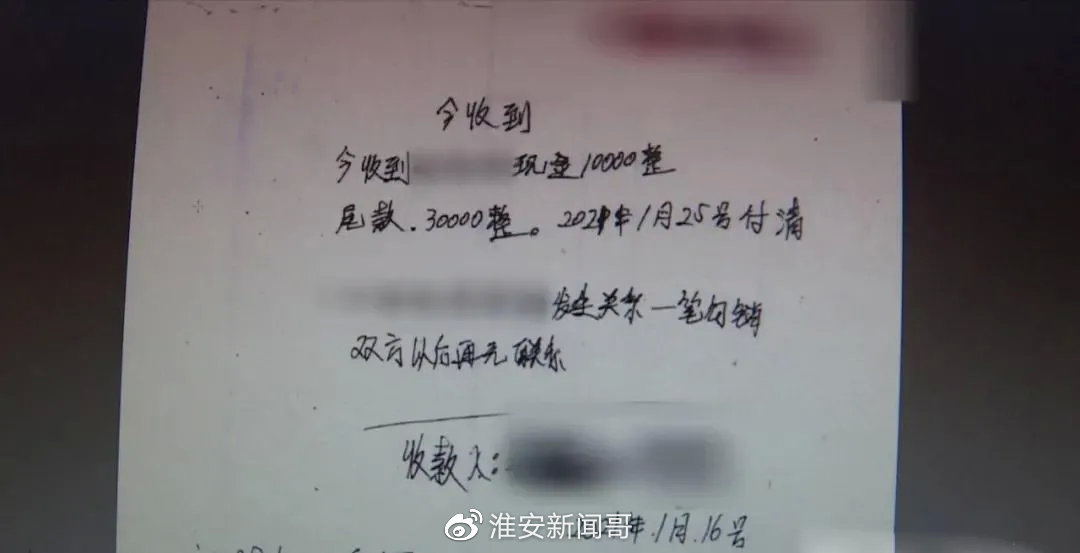 今收到
今收到 现金10000整
尾款.30000整。2021年1月25号付清
发生关系一笔勾销
双方以后再无联系
收款人:
2021年.1月.16号
淮安新闻哥